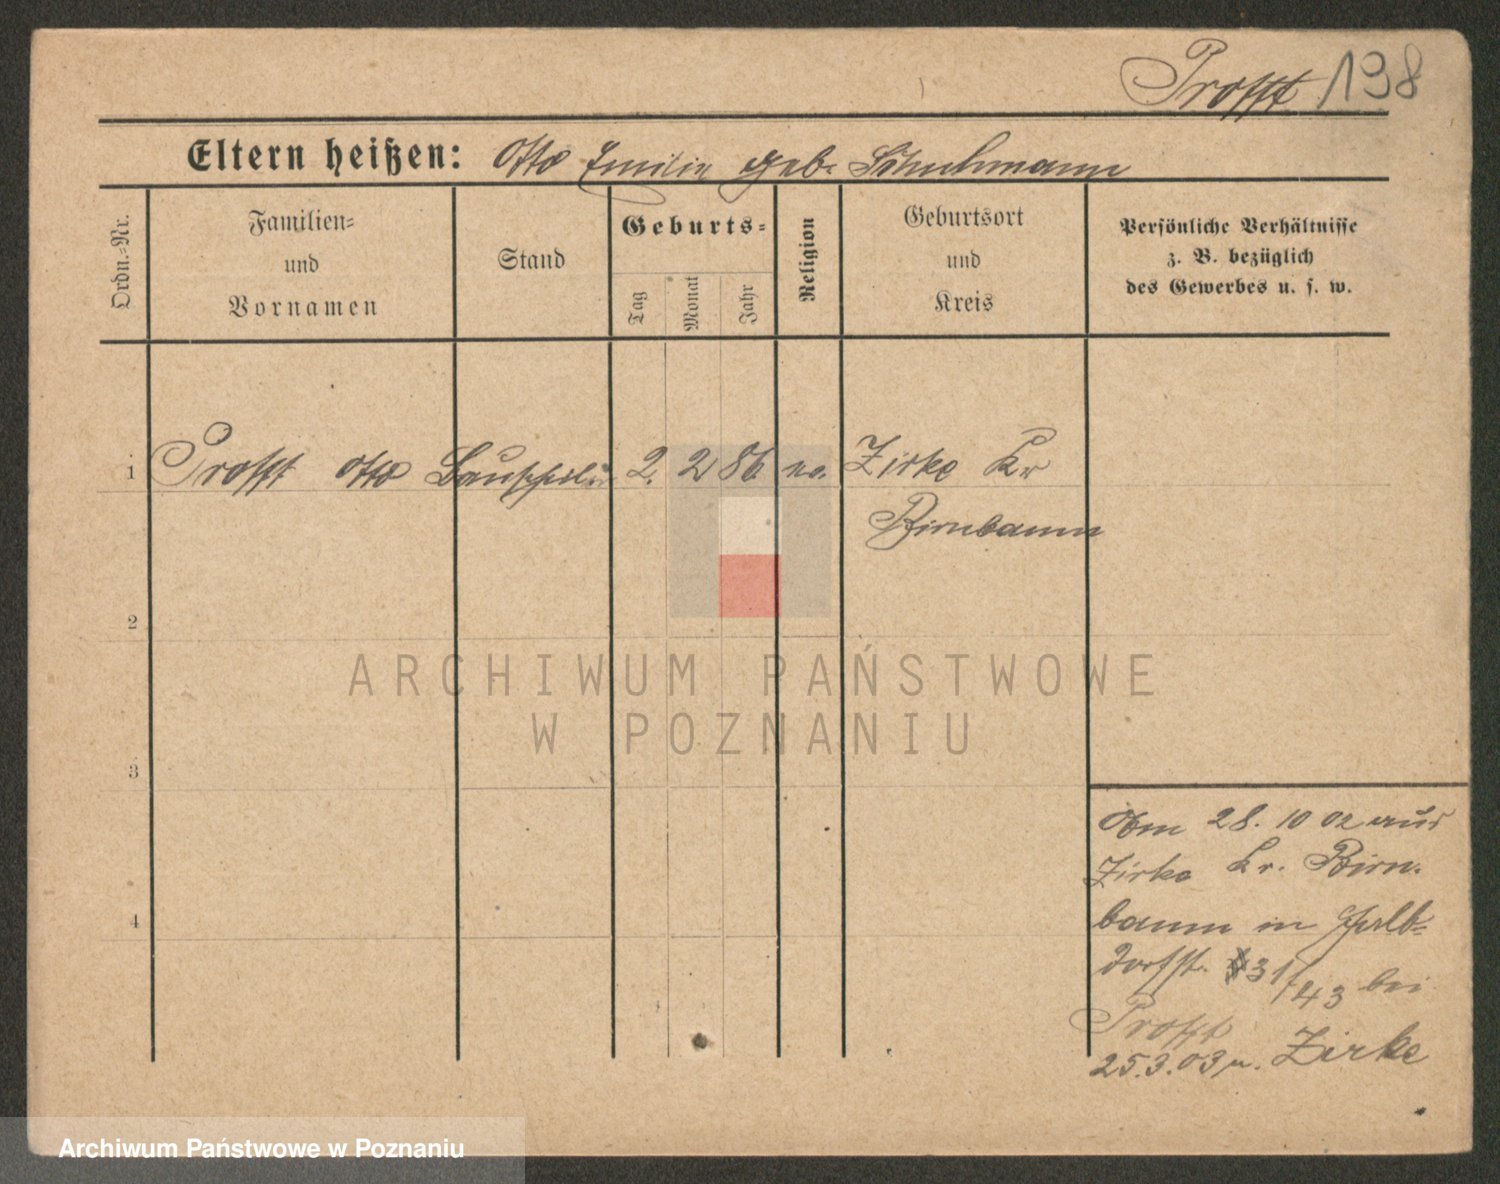 Profft 198
Eltern heißen: Otto Emilie geb. Schuhmann
Ordn.-Nr.
Familien-
und
Vornamen
Stand
Geburts-
Tag
Monat
Jahr
Religion
Geburtsort
und
Kreis
Persönliche Verhältnisse
z. B. bezüglich
des Gewerbes u. s. w.
1 Profft Otto 2. 2 86 Zirke Kr
Birnbaum
2
3
4
ARCHIWUM PAŃSTWOWE
W POZNANIU
28. 10 02 aus
Zirke Kr. Birn-
baum in Halb-
dorfstr. 31/43 bei
Profft
25.3.03 n. Zirke
Archiwum Państwowe w Poznaniu